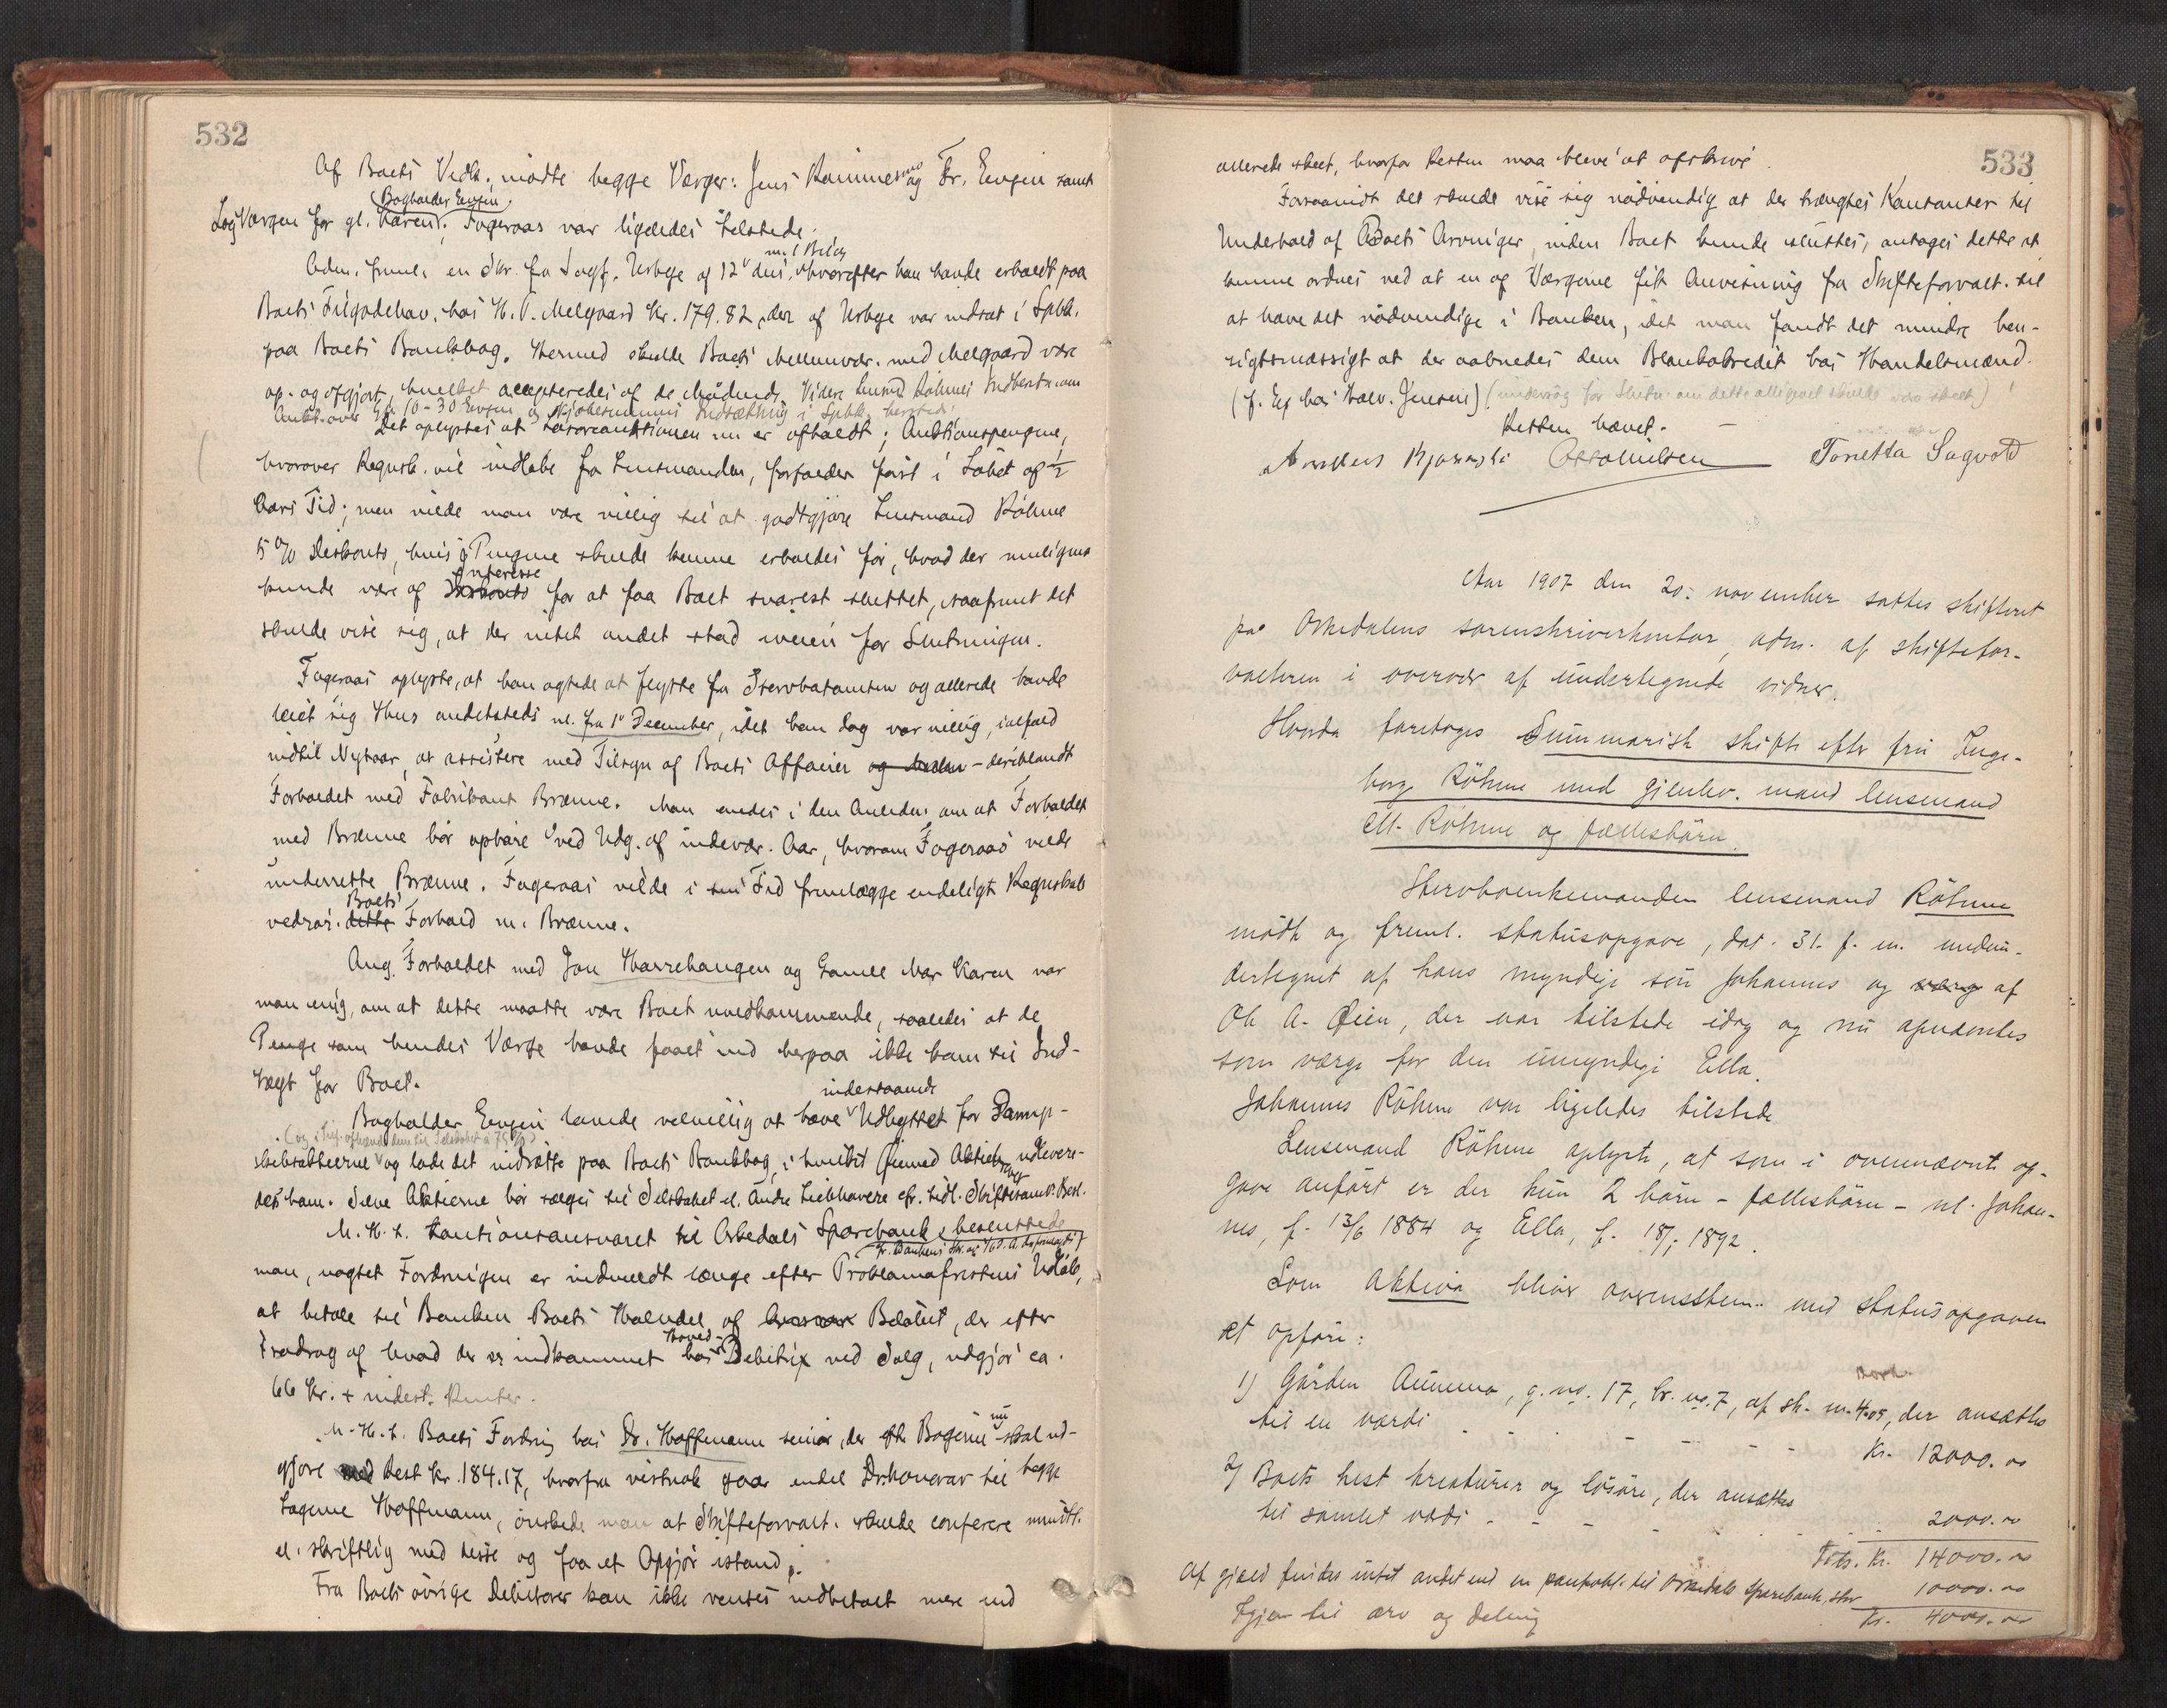 532
Af Boets Vedk. mødte begge Værger: Jens Rommesmo og Fr. Evgen samt
Bogholder Evgen.
Lagværgen for gl. Karen; Fageraas var ligeledes tilstede.
Adm. freml. en Skr. fra Sagf. Urbye af 12' dns. m. 1 Bilag, hvorefter han havde erholdt paa
Boets Tilgodehav. hos H. P. Melgaard Kr. 179.82, der af Urbye var indsat i Spbk.
paa Boets Bankbog. Hermed skulde Boets Mellemvær. med Melgaard være
op- og afgjort, hvilket accepteredes af de Mødende. Videre Lensmd Røhmes Indberetn. om
Aukt. over Gl. 10-30 Evgen og Kjøbesummens Indsætning i Spbk.
Det oplystes at Løsøreauktionen nu er afholdt; Auktionspengene,
hvorover Regnsk. vil indløbe fra Lensmanden, forfalder først i Løbet af ½
Aars Tid; men vilde man være villig til at godtgjøre Lensmand Røhme
5 % Diskonto, hvis Pengene skulde kunne erholdes før, hvad der muligens
kunde være af Interesse for at faa Boet snarest sluttet, saafremt det
skulde vise sig, at der intet andet stod iveien for Slutningen.
Fageraas oplyste, at han agtede at flytte fra Stervbotomten og allerede havde
leiet sig Hus andetsteds nl. fra 1' December, idet han dog var villig, ialfald
indtil Nytaar, at assistere med Tilsyn af Boets Affairer - deriblandt
Forholdet med Fabrikant Brænne. Man enedes i den Anledn. om at Forholdet
med Brænne bør ophøre ved Udg. af indevær. Aar, hvorom Fageraas vilde
underrette Brænne. Fageraas vilde i sin Tid fremlægge endeligt Regnskab
vedrør. Boets Forhold m. Brænne.
Ang. Forholdet med Jon Harrehaugen og Gamle Mor Karen var
man enig, om at dette maatte være Boet uvedkommende, saaledes at de
Penge som hendes Værge havde faaet ind herpaa ikke kom til Ind-
tægt for Boet.
Bogholder Evgen lovede velvillig at hæve indestaaende Udbyttet for Damp-
skibsaktierne og lade det indsætte paa Boets Bankbog, i hvilket Øiemed Aktiebrevene udlevere-
des ham. Selve Aktierne bør sælges til Selskabet el. andre Liebhavere cfr. tidl. Skiftesaml. Besl.
M. H. t. Kautionsansvaret til Orkedals Sparebank, besluttede
man, uagtet Fordringen er indmeldt længe efter Proklamafristens Udløb,
at betale til Banken Boets Halvdel af Beløbet, der efter
Fradrag af hvad der er indkommet hos Hoved-Debitrix ved Salg, udgjør ca.
66 Kr. + indest. Renter.
M. H. t. Boets Fordring hos Dr. Hoffmann senior, der efter Bøgerne nu skal ud-
gjøre Rest Kr. 184.17, hvorfra vistnok gaar endel Drhonorar til begge
Lægerne Hoffmann, ønskede man at Skifteforvalt. skulde conferere mundtl.
el. skriftlig med disse og faa et Opgjør istand.
Fra Boets øvrige Debitorer kan ikke ventes indbetalt mere end
533
allerede skeet, hvorfor Resten maa blive at afskrive.
Forsaavidt det skulde vise sig nødvendig at der trængtes Kontanter til
Underhold af Boets Arvinger, inden Boet kunde sluttes, antages dette at
kunne ordnes ved at en af Værgerne fik Anvisning fra Skifteforvalt. til
at hæve det nødvendige i Banken, idet man fandt det mindre hen-
sigtsmæssigt at der aabnedes dem Blankokredit hos Handelsmænd.
(f. Ex hos Halv. Jensen) (undersøg før Slutn. om dette alligevel skulde være skeet)!
Retten hævet. —
Anders Bjørnsli Otto Nilsen Tonetta Sagvold
Aar 1907 den 20. november sattes skifteret
paa Orkedalens sorenskriverkontor, adm. af skiftefor-
valteren i overvær af undertegnede vidner.
Hvorda foretoges Summarisk skifte efter fru Inge-
borg Röhme med gjenlev. mand lensmand
M. Röhme og fællesbörn.
Stervboenkemanden lensmand Röhme
mödte og freml. statusopgave, dat. 31. f. m. medun-
dertegnet af hans myndige sön Johannes og af
Ole A. Øien, der var tilstede idag og nu opnævntes
som værge for den umyndige Ella.
Johannes Röhme var ligeledes tilstede
Lensmand Röhme oplyste, at som i ovennævnte op-
gave anfört er der kun 2 börn - fællesbörn - nl. Johan-
nes, f. 13/6 1884 og Ella, f. 18/7 1892.
Som Aktiva bliver overensstem. med statusopgaven
at opföre:
1) Gården Aunemo, g. no. 17, br. no. 7, af sk. m. 4.05, der ansættes
til en værdi - - - - - Kr. 12000.00
2) Boets hest kreaturer og lösöre, der ansættes
til samlet værdi - - - - 2000.00
Tils. Kr. 14000.00
Af gjæld findes intet andet end en pantobl. til Orkedals Sparebank, stor 10000.00
Igjen til arv og deling Kr. 4000.00